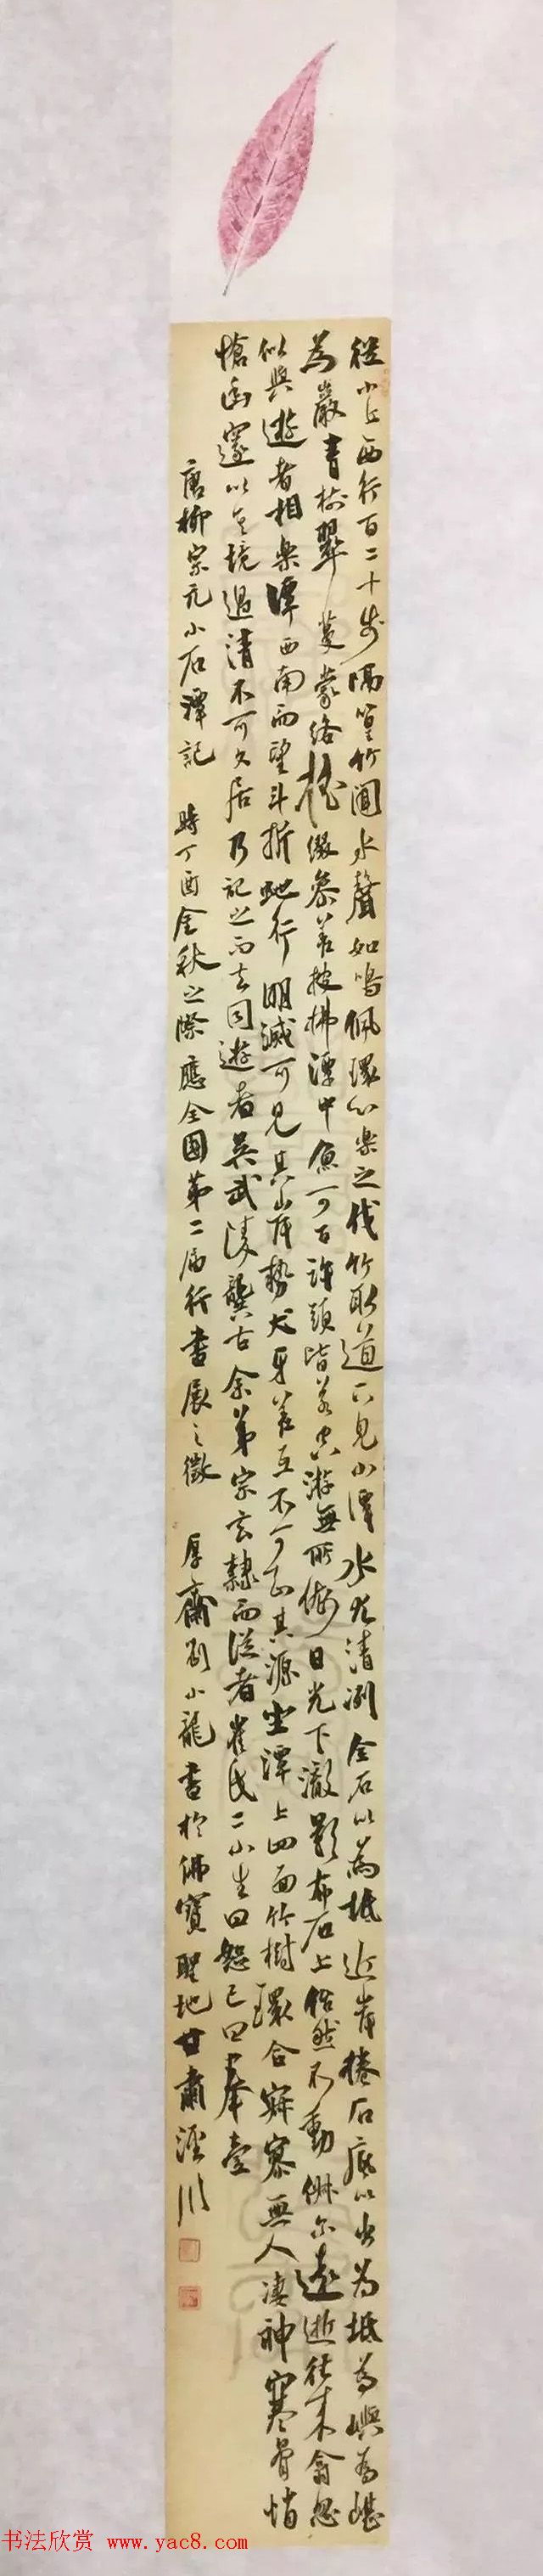 從小丘西行百二十步隔篁竹聞水聲如鳴佩環心樂之伐竹取道下見小潭水尤清冽全石以為坻近岸捲石底以出為坻為嶼為嵁
為巖青樹翠蔓蒙絡搖綴參差披拂潭中魚可百許頭皆若空游無所依日光下澈影布石上佁然不動俶尔遠逝往來翕忽
似與遊者相樂潭西南而望斗折蛇行明滅可見其岸勢犬牙差互不可知其源坐潭上四面竹樹環合寂寥無人凄神寒骨悄
愴幽邃以其境過清不可久居乃記之而去同遊者吳武陵龔古余弟宗玄隸而從者崔氏二小生曰恕己曰奉壹
唐柳宗元小石潭記 時丁酉金秋之際應全國第二屆行書展之徵 厚齋劉小龍書於佛寶聖地甘肅涇川
书法欣赏 www.yac8.com